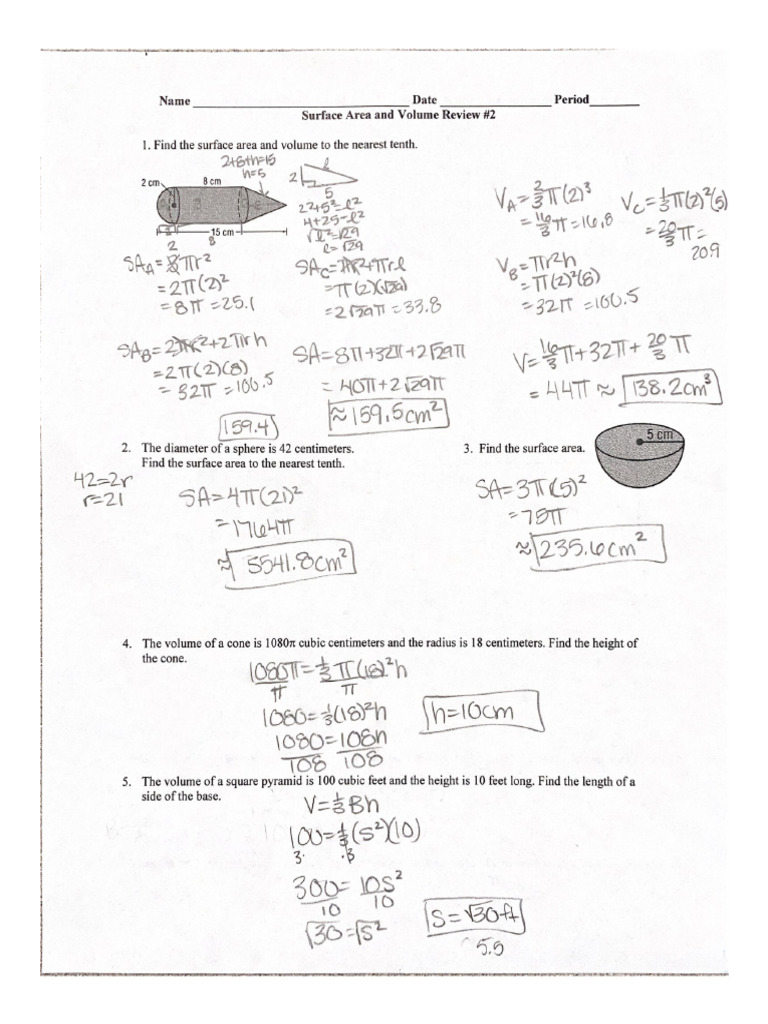 Name ______________ Date ______________ Period________
Surface Area and Volume Review #2
1. Find the surface area and volume to the nearest tenth.
2+8+h=15
h=5
2 cm
8 cm
15 cm
2
8
2
l
5
2²+5²=l²
4+25=l²
√l²=√29
l=√29
V_A=2/3π(2)³
=16/3π=16.8
V_C=1/3π(2)²(5)
=20/3π=
20.9
V_B=πr²h
=π(2)²(8)
=32π=100.5
SA_A=πr²
=2π(2)²
=8π=25.1
SA_C=πr²+πrl
=π(2)(√29)
=2√29π=33.8
SA_B=2πr²+2πrh
=2π(2)(8)
=32π=100.5
SA=8π+32π+2√29π
=40π+2√29π
≈159.5cm²
159.4
V=16/3π+32π+20/3π
=44π≈138.2cm³
2. The diameter of a sphere is 42 centimeters.
Find the surface area to the nearest tenth.
42=2r
r=21
SA=4π(21)²
=1764π
≈5541.8cm²
3. Find the surface area.
5 cm
SA=3π(5)²
=75π
≈235.6cm²
4. The volume of a cone is 1080π cubic centimeters and the radius is 18 centimeters. Find the height of
the cone.
1080π=1/3π(18)²h
π π
1080=1/3(18)²h
1080=108h
108 108
h=10cm
5. The volume of a square pyramid is 100 cubic feet and the height is 10 feet long. Find the length of a
side of the base.
V=1/3Bh
100=1/3(s²)(10)
3· ·3
300=10s²
10 10
√30=√s²
s=√30ft
5.5